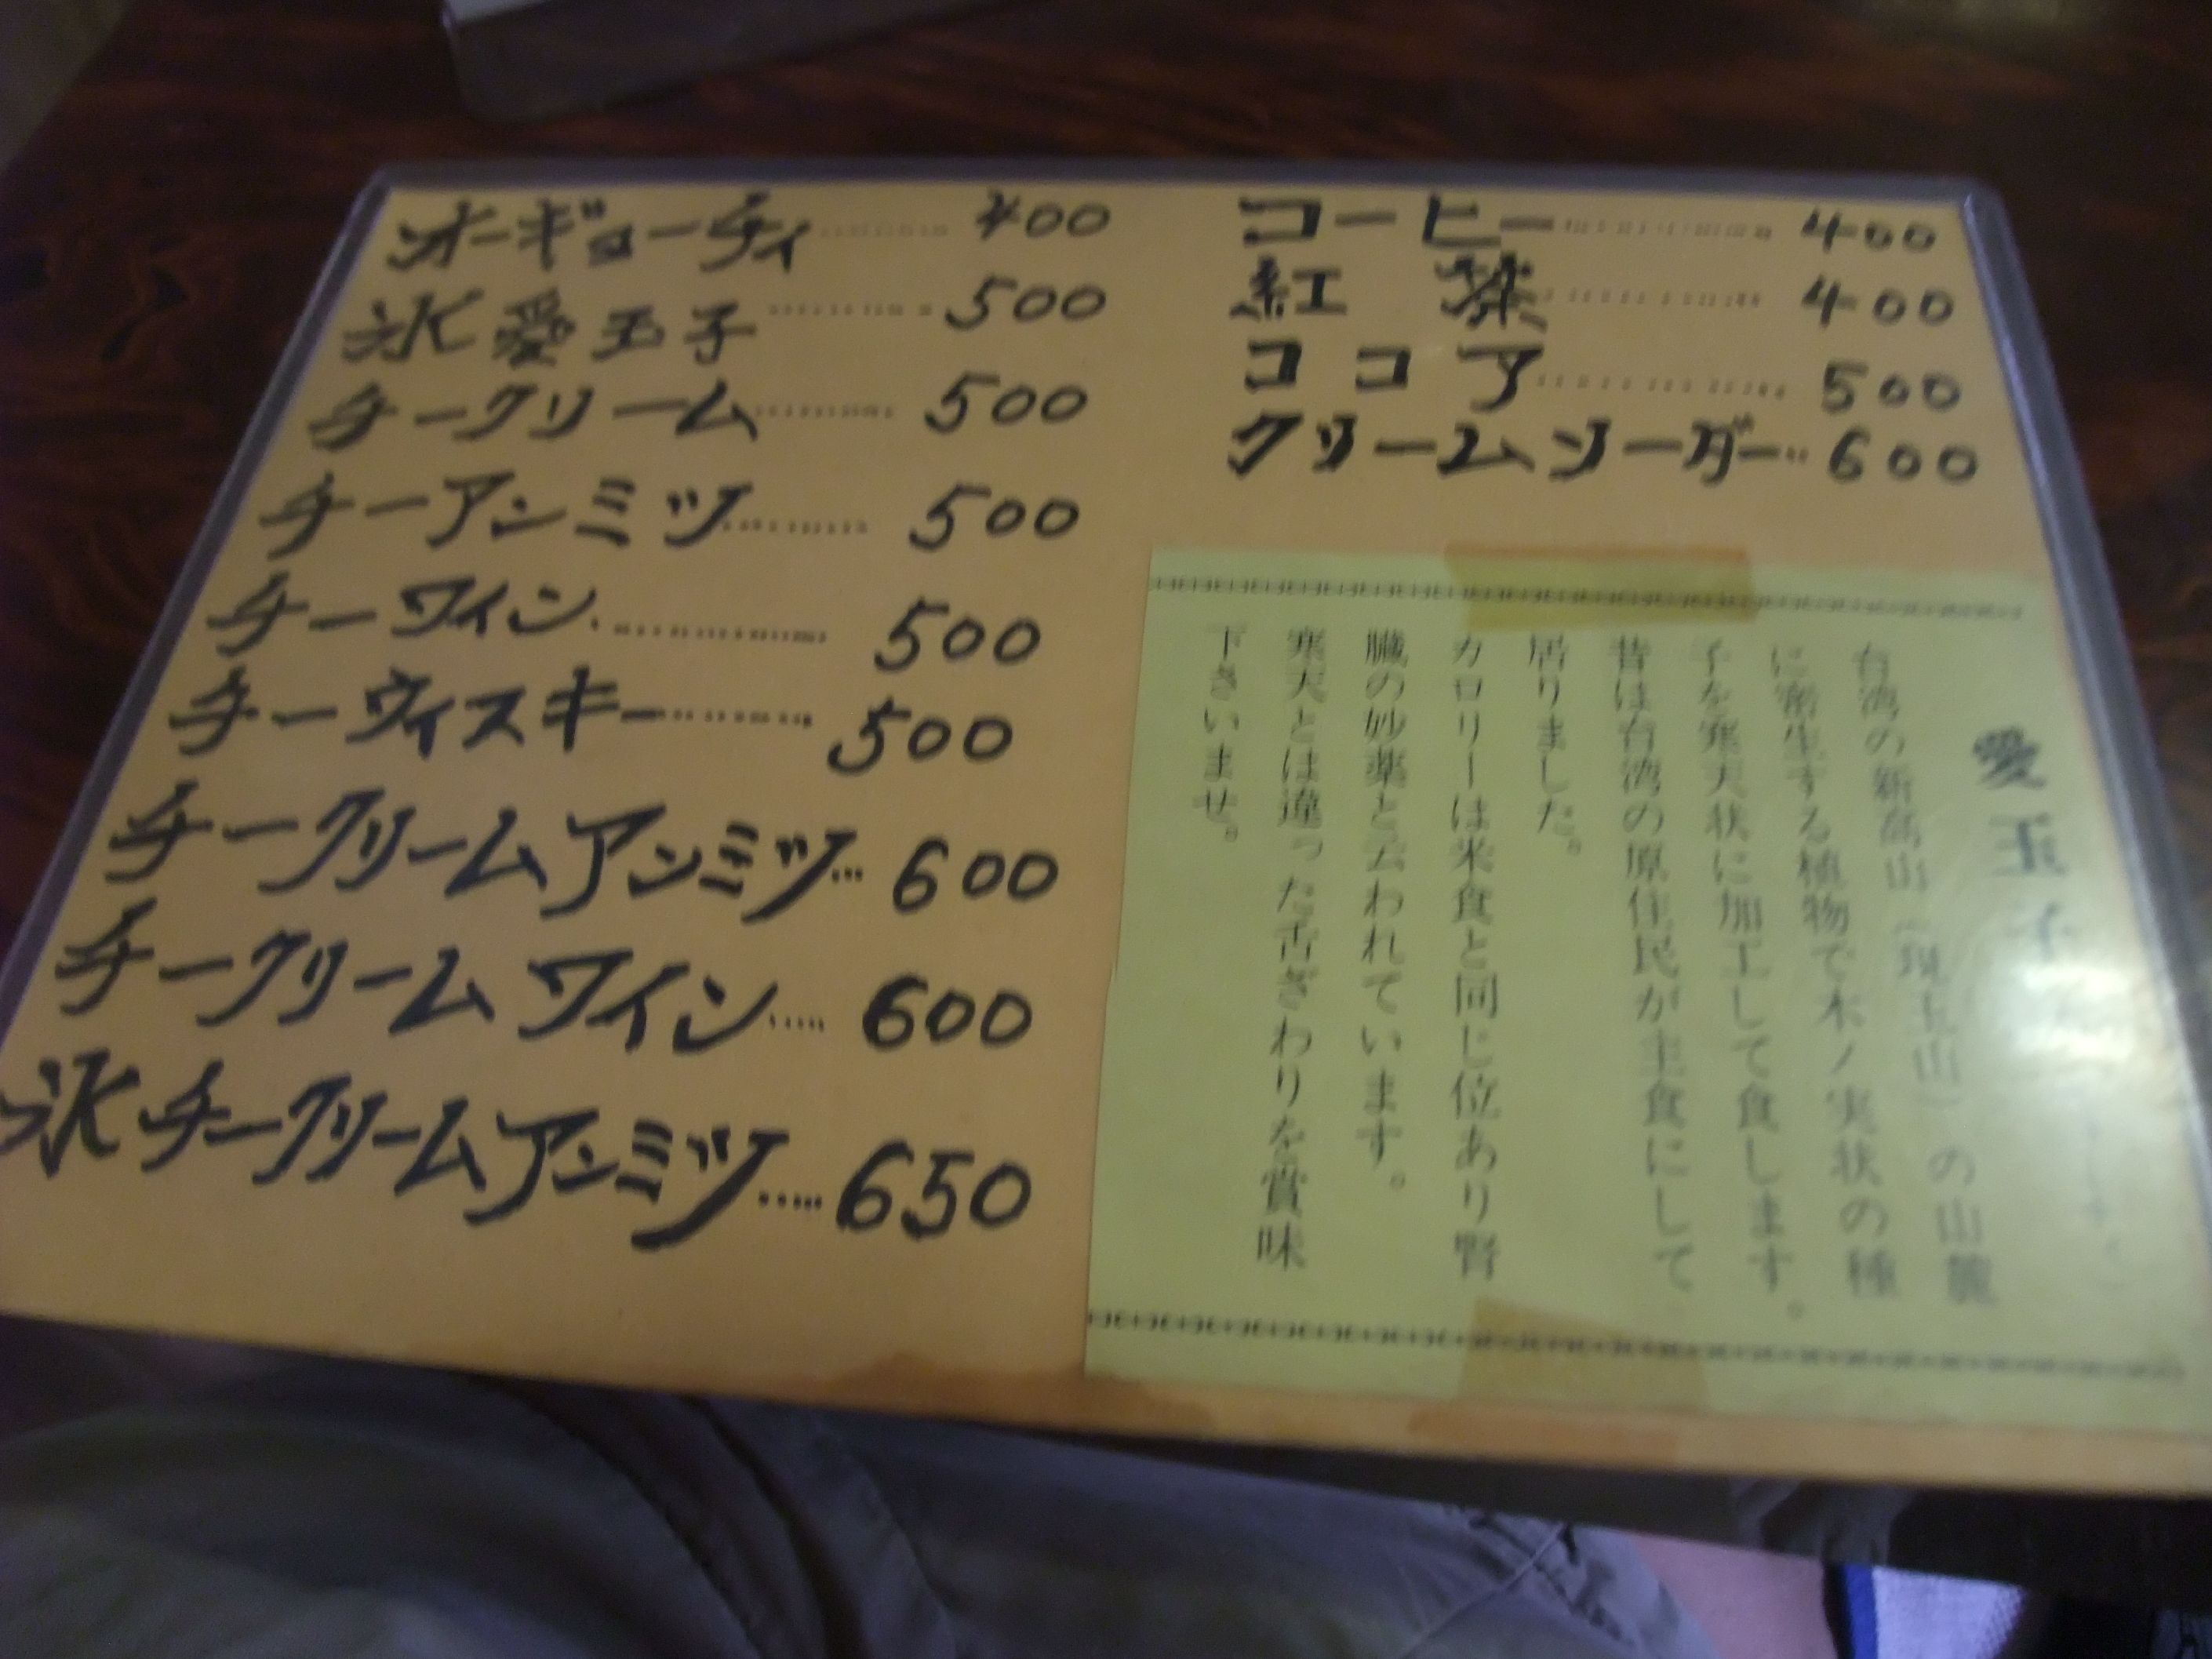 オーギョーチィ……… 400
氷愛玉子……… 500
チークリーム……… 500
チーアンミツ……… 500
チーワイン……… 500
チーウィスキー……… 500
チークリームアンミツ… 600
チークリームワイン…… 600
氷チークリームアンミツ…… 650
コーヒー……… 400
紅茶……… 400
ココア……… 500
クリームソーダー… 600
愛玉子
台湾の新高山（現玉山）の山麓
に寄生する植物で木ノ実状の種
子を寒天状に加工して食します。
昔は台湾の原住民が主食にして
居りました。
カロリーは米食と同じ位あり腎
臓の妙薬と云われています。
寒天とは違った舌ざわりを賞味
下さいませ。